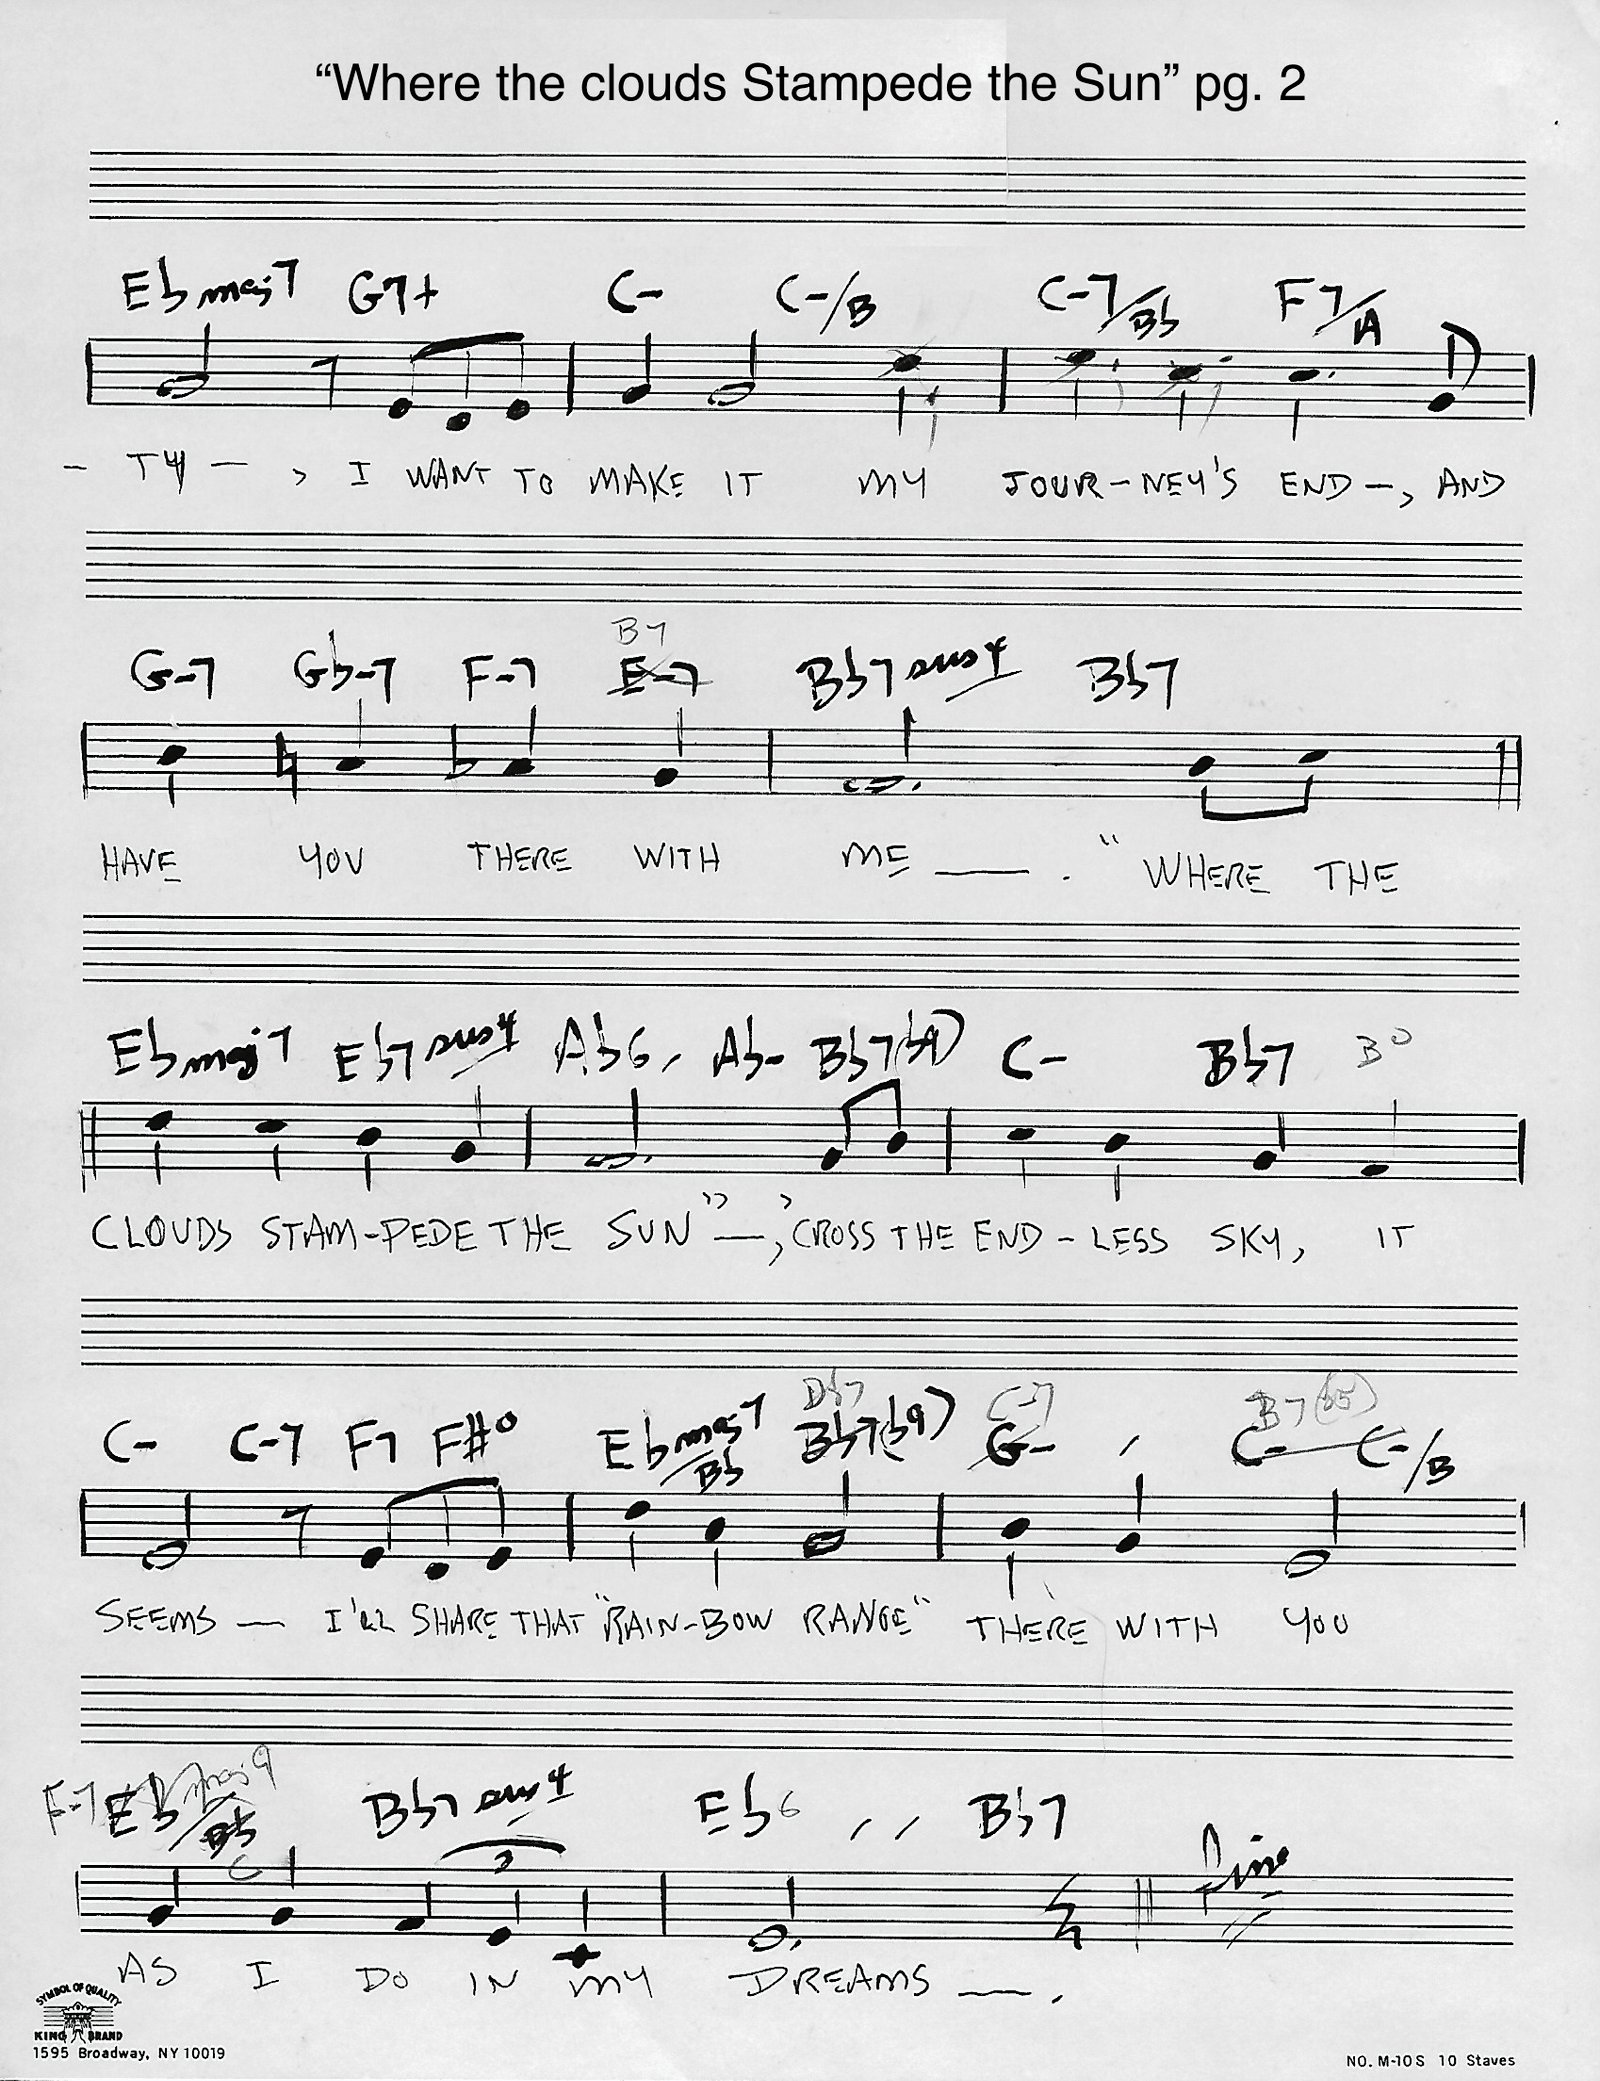 “Where the clouds Stampede the Sun” pg. 2
Eb maj7 G7+ C- C-/B C-7/Bb F7/A
- TY — , I WANT TO MAKE IT MY JOUR-NEY'S END —, AND
B7
G-7 Gb-7 F-7 E-7 Bb7 sus4 Bb7
HAVE YOU THERE WITH ME ——. “WHERE THE
Eb maj7 Eb7 sus4 Ab6, Ab- Bb7(b9) C- Bb7 B°
CLOUDS STAM-PEDE THE SUN” —, 'CROSS THE END-LESS SKY, IT
Db7 C-7 B7(b5)
C- C-7 F7 F#° Eb maj7/Bb Bb7(b9) G- , C- C-/B
SEEMS — I'LL SHARE THAT “RAIN-BOW RANGE” THERE WITH YOU
F-7 Eb maj9/Bb Bb7 sus4 Eb6 , , Bb7
C
3
Fine
AS I DO IN MY DREAMS ——.
SYMBOL OF QUALITY
KING BRAND
1595 Broadway, NY 10019
NO. M-10S 10 Staves